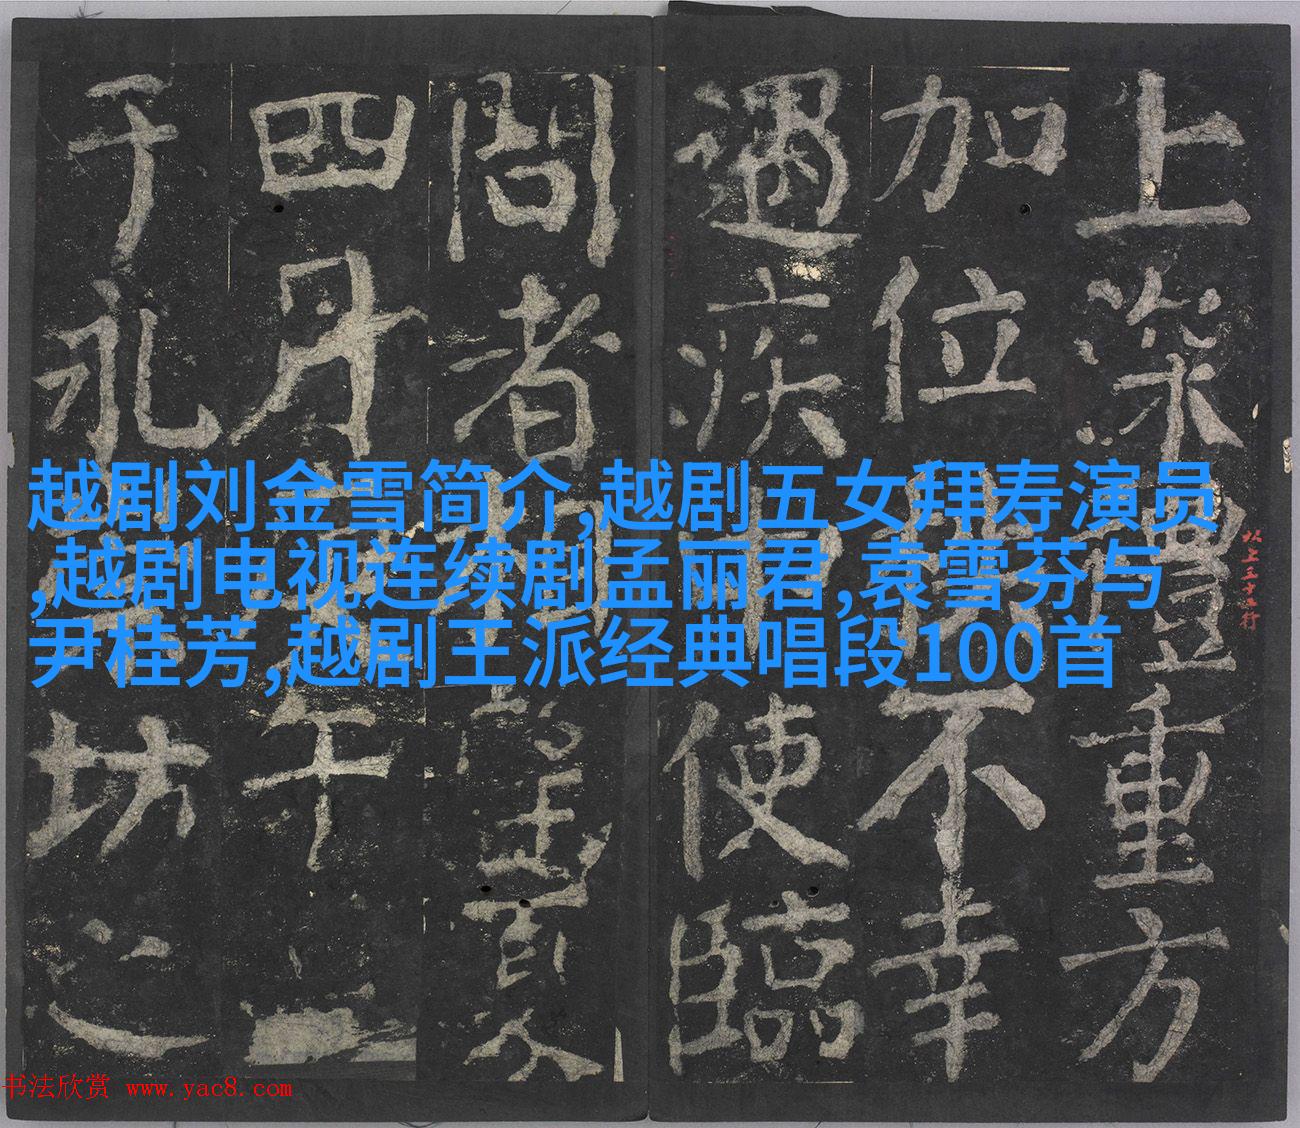 上深重方
加位不幸
遇疾中使臨
問者相望夏
四月午
于永嘉坊之
越剧刘金雪简介,越剧五女拜寿演员
,越剧电视连续剧孟丽君,袁雪芬与
尹桂芳,越剧王派经典唱段100首
书法欣赏 www.yac8.com